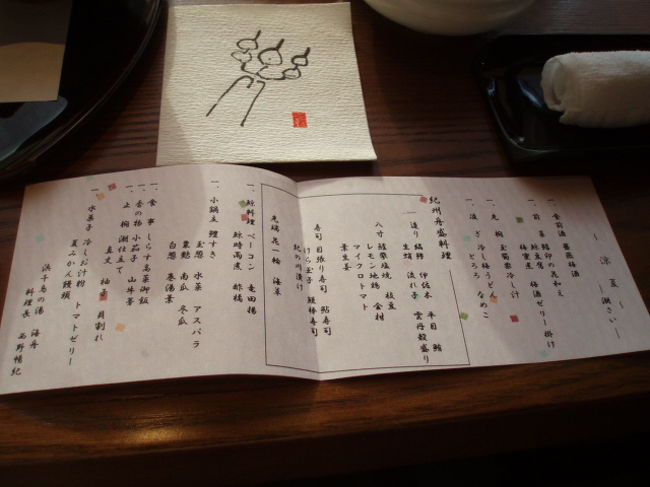 ～ 涼 夏 ～
ー潮さいー
一、食前酒 薔薇梅酒
一、前 菜 鯨豆腐 梅酒ゼリー掛け
梅蜜煮
一、先 椀 玉蜀黍冷し汁
一、凌 ぎ 冷し梅うどん
とろろ なめこ
紀州舟盛料理
一、造り 縞鯵 伊佐木 平目 鮪
生蛸 流れ子 雲丹殻盛り
八寸 鱧塩焼 枝豆
レモン地鶏 金柑
マイクロトマト
葉生姜
寿司 目張り寿司 鮎寿司
けら玉子 鰻棒寿司
紀の川漬け
先端 花一輪 海草
一、鯨料理 ベーコン 竜田揚
鯨時雨煮 酢橘
一、小鍋立 鱧すき
玉葱 水菜 アスパラ
粟麩 南瓜 冬瓜
白葱 巻湯葉
一、食 事 しらす高菜御飯
一、香の物 小茄子 山牛蒡
一、止 椀 潮仕立て
真丈 柚子 貝割れ
一、水菓子 冷しぶ汁粉 トマトゼリー
夏みかん饅頭
浜千鳥の湯 海舟
料理長 西野暢紀